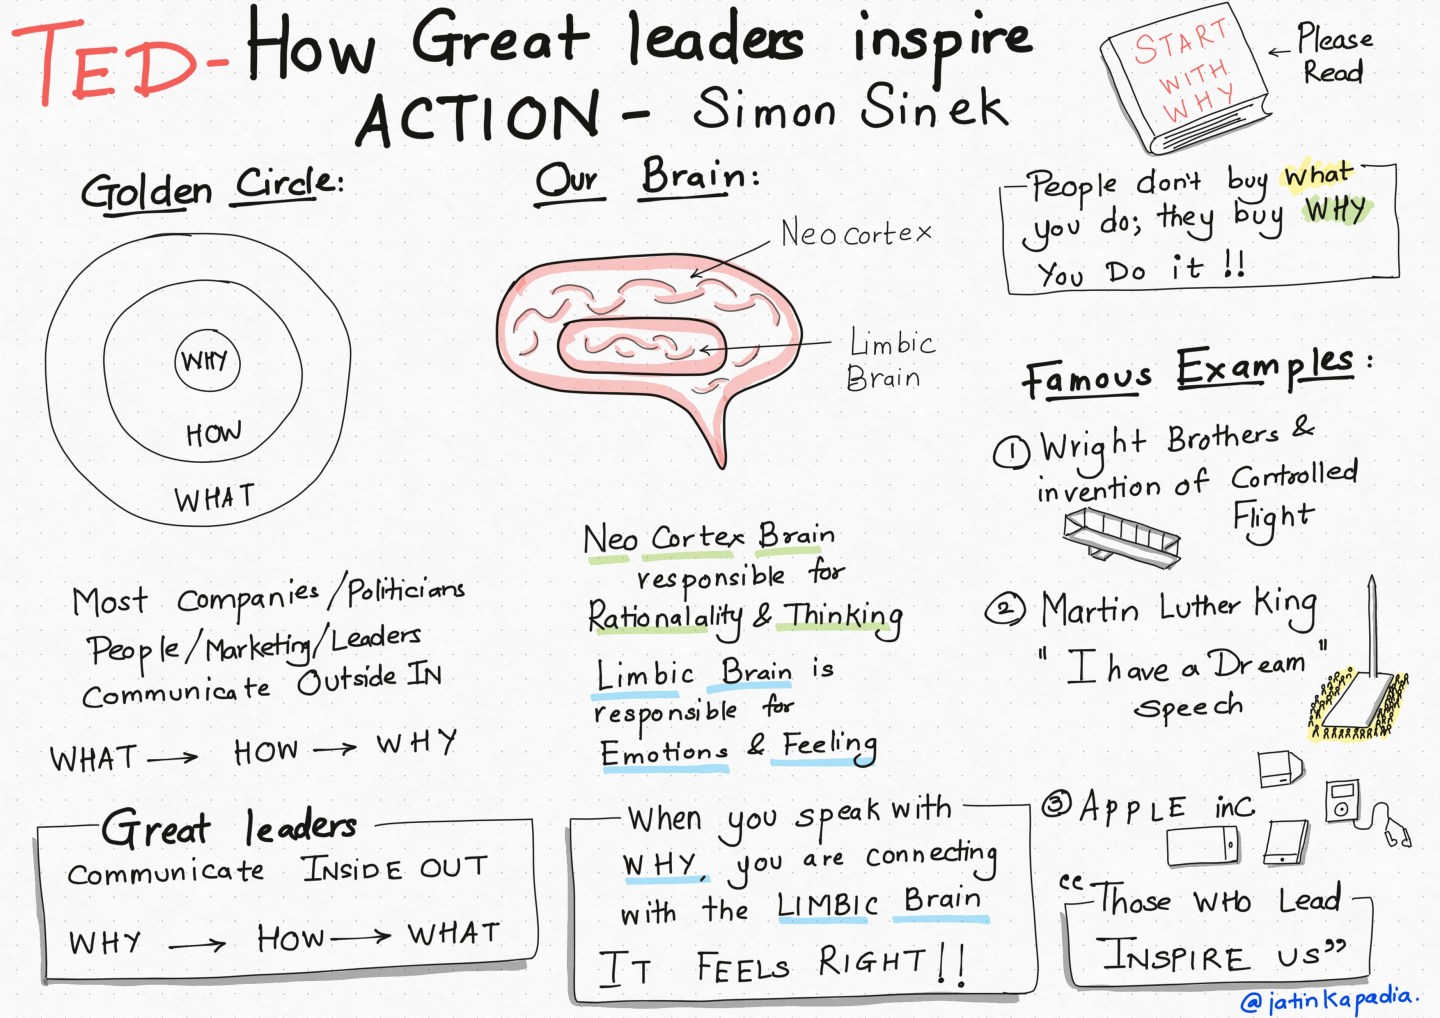 TED - How Great leaders inspire
ACTION - Simon Sinek
START
WITH
WHY
← Please
Read
Golden Circle:
WHY
HOW
WHAT
Most Companies/Politicians
People/Marketing/Leaders
Communicate Outside IN
WHAT → HOW → WHY
Great leaders
Communicate INSIDE OUT
WHY → HOW → WHAT
Our Brain:
Neocortex
Limbic
Brain
Neo Cortex Brain
responsible for
Rationalality & Thinking
Limbic Brain is
responsible for
Emotions & Feeling
When you speak with
WHY, you are connecting
with the LIMBIC Brain
IT FEELS RIGHT!!
People don't buy what
you do; they buy WHY
You Do it !!
Famous Examples:
① Wright Brothers &
invention of Controlled
Flight
② Martin Luther King
"I have a Dream"
speech
③ APPLE inc
“Those WHO Lead
INSPIRE us”
@jatinkapadia.